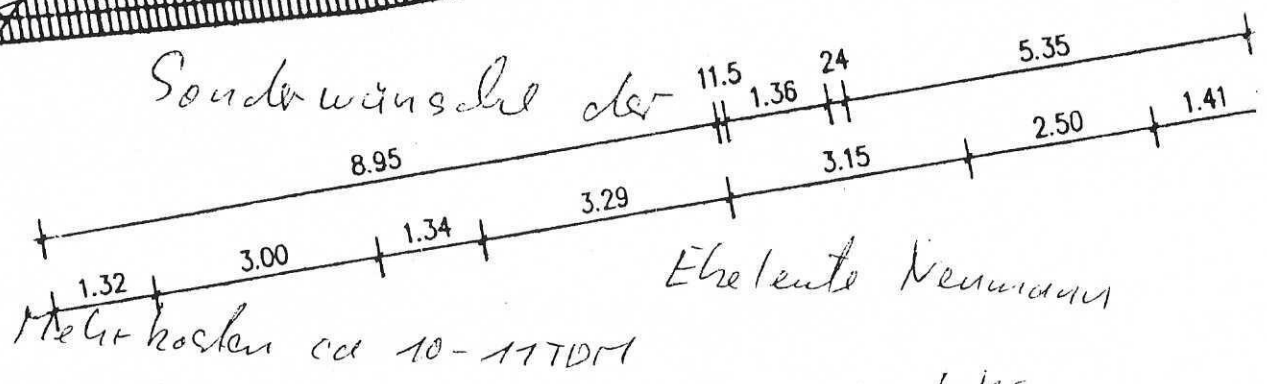 Sonderwünsche der
11.5 1.36 24 5.35
8.95
1.32 3.00 1.34 3.29 3.15 2.50 1.41
Eheleute Neumann
Mehrkosten ca 10-11TDM